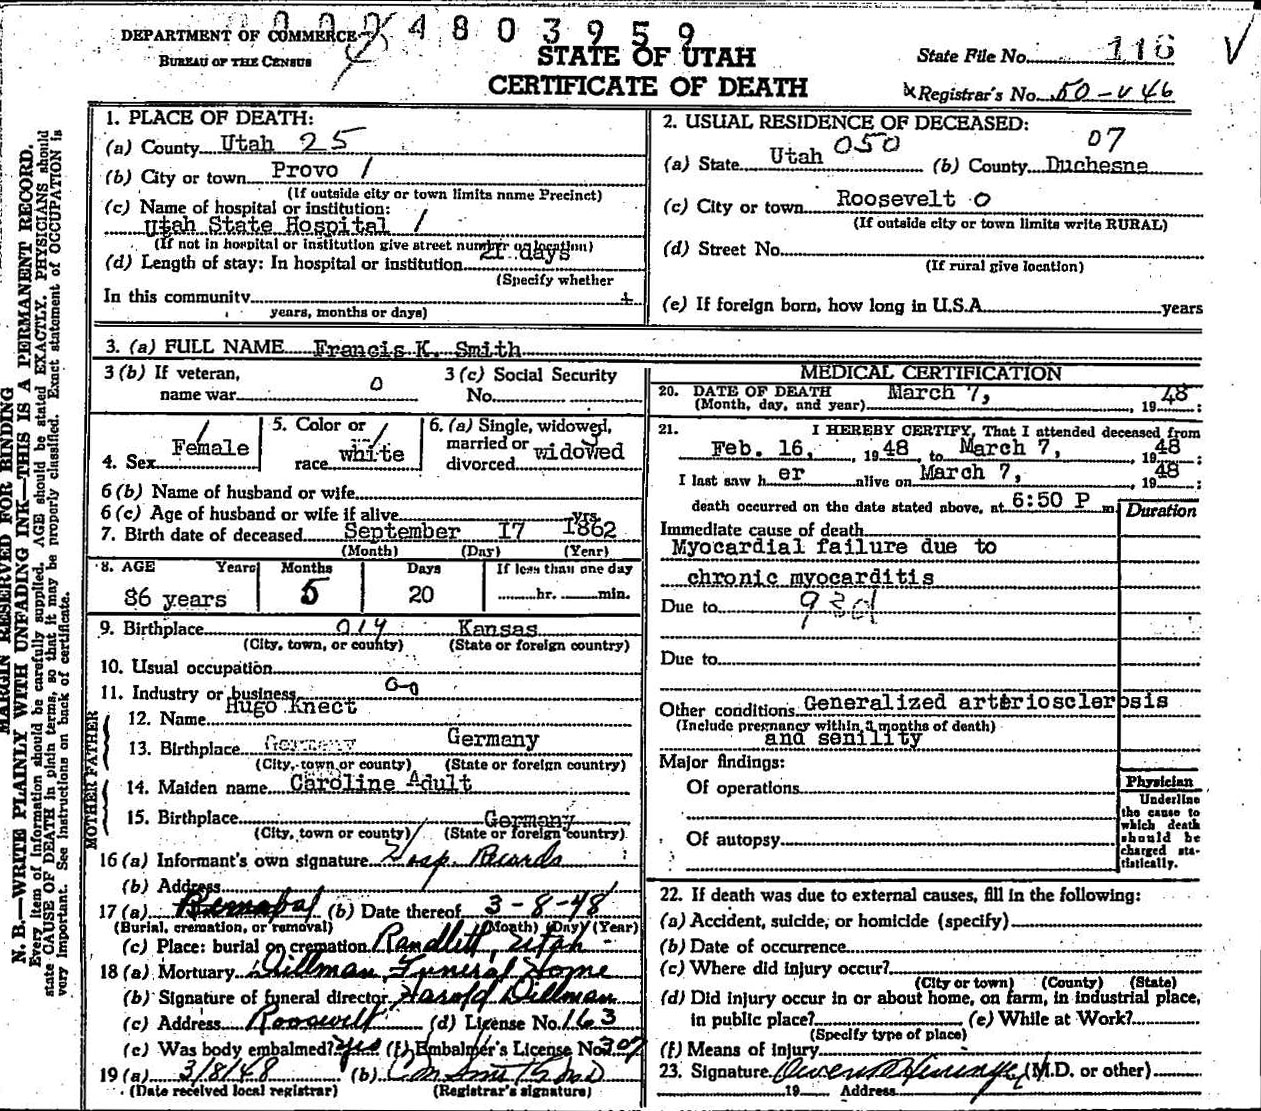 0004803959
DEPARTMENT OF COMMERCE
BUREAU OF THE CENSUS
STATE OF UTAH
CERTIFICATE OF DEATH
State File No. 116
Registrar's No. 50-v46
MARGIN RESERVED FOR BINDING
N. B.—WRITE PLAINLY WITH UNFADING INK—THIS IS A PERMANENT RECORD.
Every item of information should be carefully supplied. AGE should be stated EXACTLY. PHYSICIANS should
state CAUSE OF DEATH in plain terms, so that it may be properly classified. Exact statement of OCCUPATION is
very important. See instructions on back of certificate.
1. PLACE OF DEATH:
(a) County Utah 25
(b) City or town Provo 1
(If outside city or town limits name Precinct)
(c) Name of hospital or institution:
Utah State Hospital 1
(If not in hospital or institution give street number or location)
(d) Length of stay: In hospital or institution 21 days
(Specify whether
In this community
years, months or days)
2. USUAL RESIDENCE OF DECEASED:
(a) State Utah 050 (b) County Duchesne 07
(c) City or town Roosevelt 0
(If outside city or town limits write RURAL)
(d) Street No.
(If rural give location)
(e) If foreign born, how long in U.S.A. years
3. (a) FULL NAME Francis K. Smith
3 (b) If veteran, name war 0
3 (c) Social Security No.
4. Sex Female
5. Color or race white
6. (a) Single, widowed, married or divorced widowed
6 (b) Name of husband or wife
6 (c) Age of husband or wife if alive yrs.
7. Birth date of deceased September 17 1862
(Month) (Day) (Year)
8. AGE Years Months Days If less than one day
86 years 5 20 hr. min.
9. Birthplace 014 Kansas
(City, town, or county) (State or foreign country)
10. Usual occupation
11. Industry or business
FATHER
12. Name Hugo Knect
13. Birthplace Germany Germany
(City, town or county) (State or foreign country)
MOTHER
14. Maiden name Caroline Adult
15. Birthplace Germany
(City, town or county) (State or foreign country)
16 (a) Informant's own signature Hosp. Records
(b) Address
17 (a) Removal (b) Date thereof 3-8-48
(Burial, cremation, or removal) (Month) (Day) (Year)
(c) Place: burial or cremation Randlett, Utah
18 (a) Mortuary Dillman Funeral Home
(b) Signature of funeral director Harold Dillman
(c) Address Roosevelt (d) License No. 163
(e) Was body embalmed? yes (f) Embalmer's License No. 307
19 (a) 3/8/48 (b)
(Date received local registrar) (Registrar's signature)
MEDICAL CERTIFICATION
20. DATE OF DEATH March 7, 1948
(Month, day, and year)
21. I HEREBY CERTIFY, That I attended deceased from
Feb. 16, 1948, to March 7, 1948;
I last saw her alive on March 7, 1948;
death occurred on the date stated above, at 6:50 P m.
Duration
Immediate cause of death
Myocardial failure due to
chronic myocarditis
Due to 93d
Due to
Other conditions Generalized arteriosclerosis
(Include pregnancy within 3 months of death)
and senility
Major findings:
Of operations
Of autopsy
Physician
Underline
the cause to
which death
should be
charged sta-
tistically.
22. If death was due to external causes, fill in the following:
(a) Accident, suicide, or homicide (specify)
(b) Date of occurrence
(c) Where did injury occur?
(City or town) (County) (State)
(d) Did injury occur in or about home, on farm, in industrial place,
in public place? (e) While at Work?
(Specify type of place)
(f) Means of injury
23. Signature (M.D. or other)
19 Address